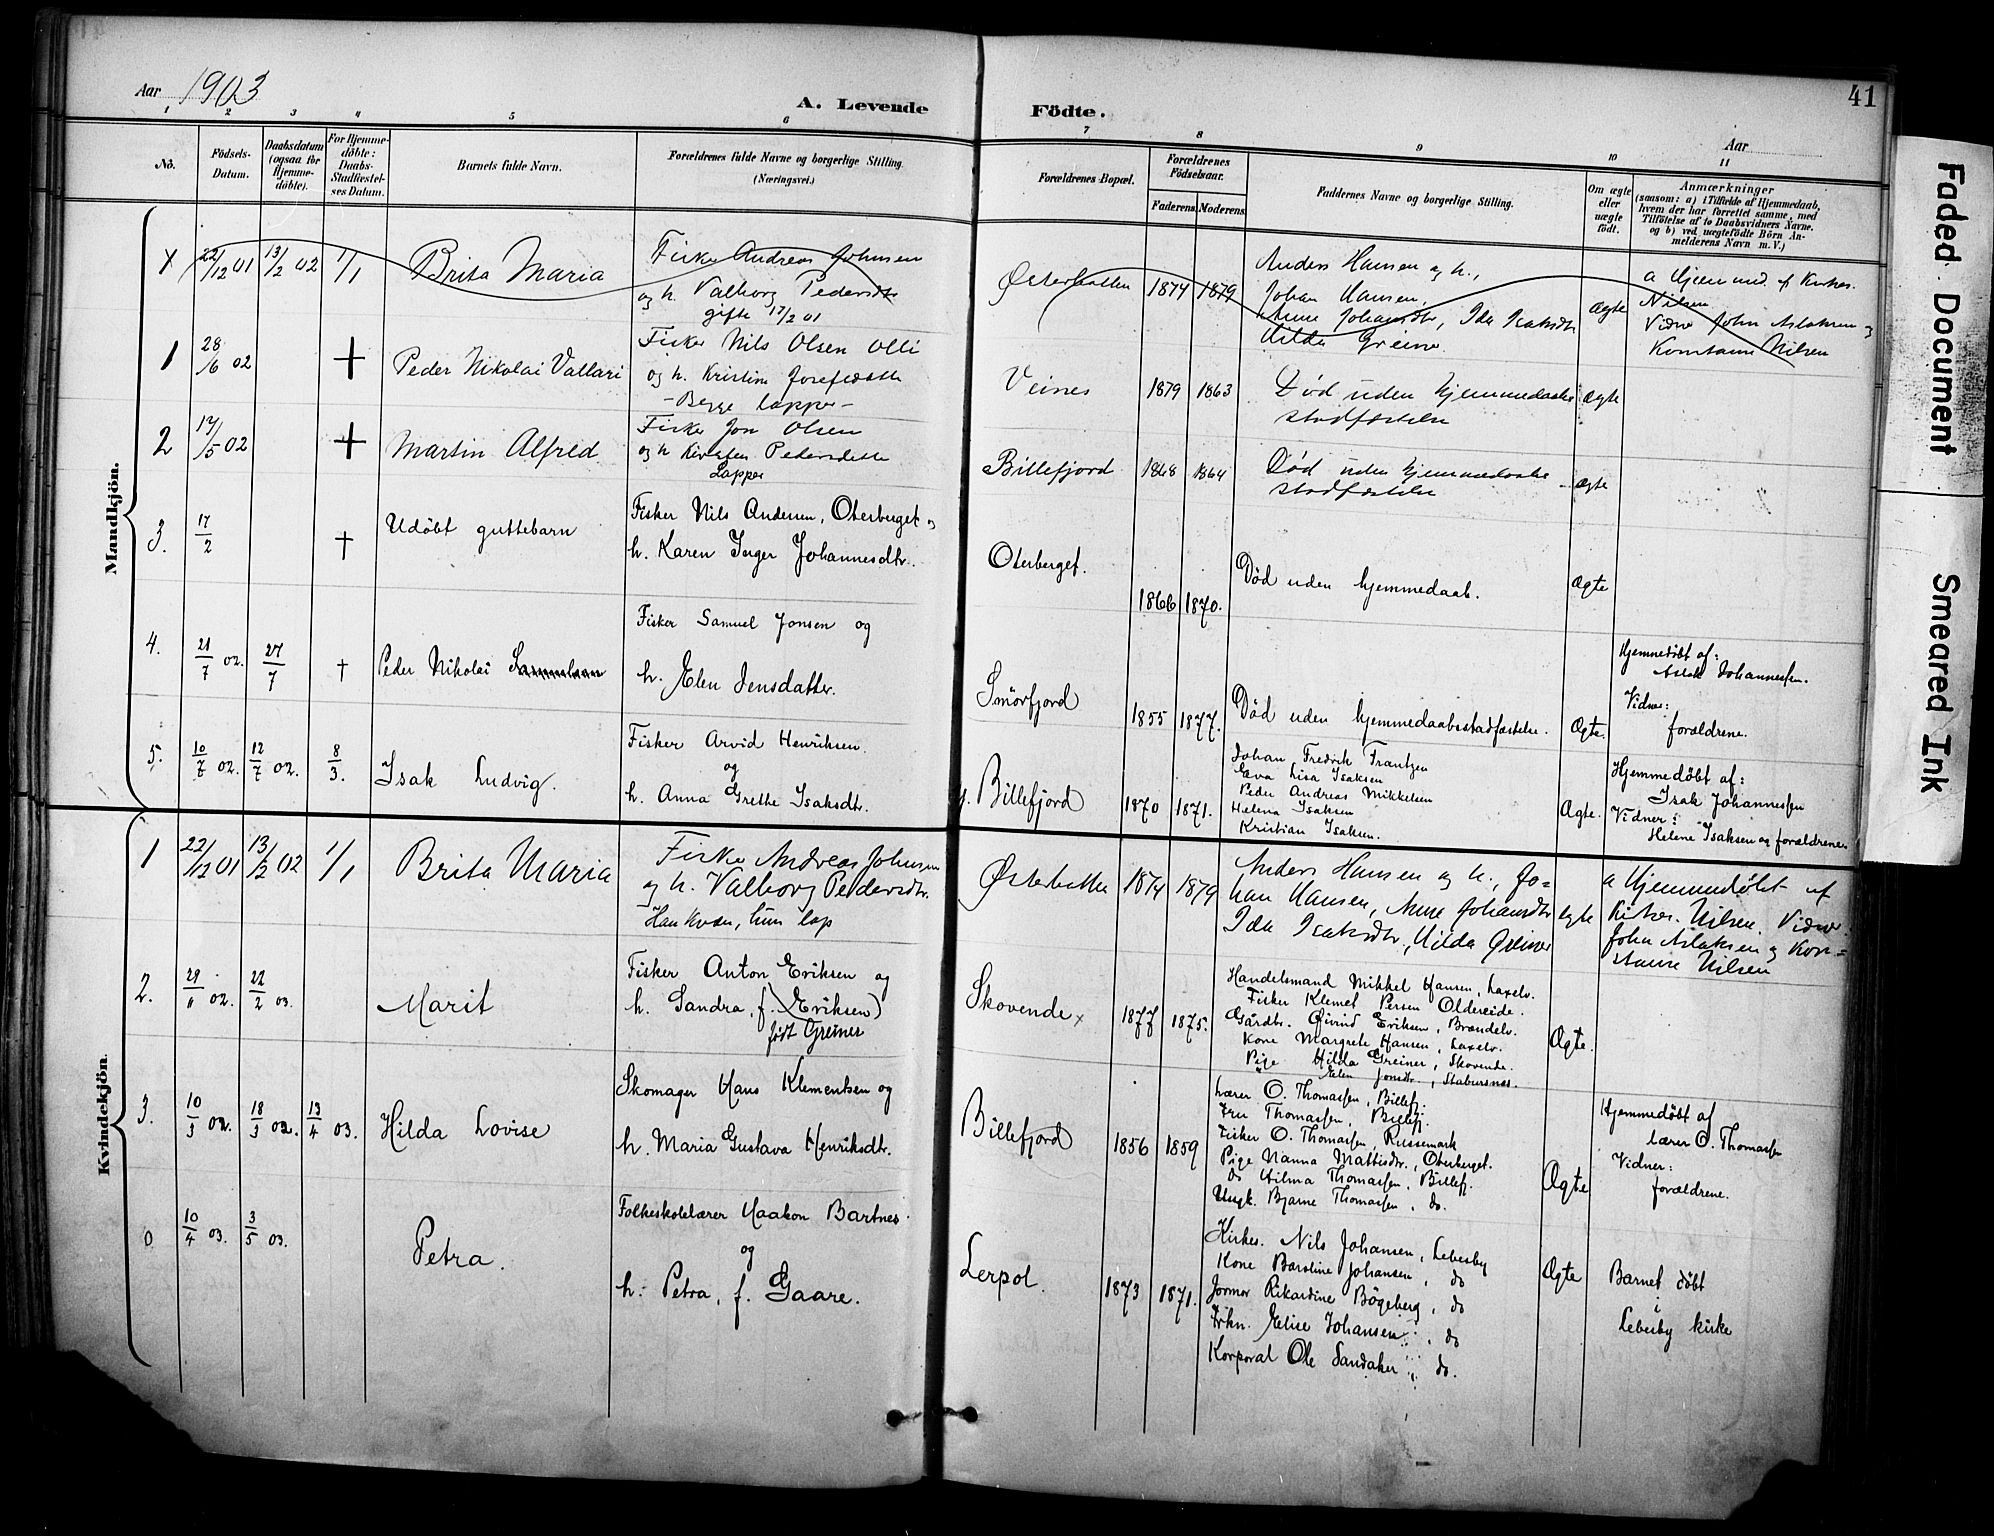 Aar 1903
A. Levende
Födte.
Aar
41
1 2 3 4 5 6 7 8 9 10 11
No.
Födsels-
Datum.
Daabsdatum
(ogsaa for
Hjemme-
döbte).
For Hjemme-
döbte:
Daabs-
Stadfæstel-
ses Datum.
Barnets fulde Navn.
Forældrenes fulde Navne og borgerlige Stilling.
(Næringsvei.)
Forældrenes Bopæl.
Forældrenes
Födselsaar.
Faderens. Moderens.
Faddernes Navne og borgerlige Stilling.
Om ægte
eller
uægte
födt.
Anmærkninger
(saasom: a) i Tilfælde af Hjemmedaab,
hvem der har forrettet samme, med
Tilföielse af to Daabsvidners Navne.
og b) ved uægtefödte Börn An-
melderens Navn m. V.)
Mandkjön.
22/12 01 13/2 02 1/1 Brita Maria
Fisker Andreas Johnsen
og h. Valborg Pedersdtr
gifte 17/2 01
Østerbotten 1874 1879
Anders Hansen og h.,
Johan Hansen,
Anne Johansdtr, Ida Isaksdtr
Hilda Greiner
ægte
a Hjemmed. af Kirkes.
Nilsen
Vidner John Aslaksen og
Konstanse Nilsen
1 28/6 02 + Peder Nikolai Vallari
Fisker Nils Olsen Olli
og h. Kristine Josefsdatter
- Begge lapper -
Veines 1879 1863
Död uden hjemmedaabs
stadfæstelse
ægte
2 17/5 02 + Martin Alfred
Fisker Jon Olsen
og h Kirsten Pedersdatter
Lapper
Billefjord 1868 1864
Död uden hjemmedaabs
stadfæstelse
ægte
3. 17/2 † Udöbt guttebarn
Fisker Nils Andersen, Oterberget og
h. Karen Inger Johannesdtr.
Oterberget.
1866 1870.
Död uden hjemmedaab.
Ægte
4. 21/7 02. 27/7 † Peder Nikolai Samuelsen
Fisker Samuel Jonsen og
h. Elen Jensdatter.
Smörfjord
1855 1877.
Död uden hjemmedaabsstadfæstelse.
Ægte.
Hjemmedöbt af:
Aslak Johannesen.
Vidner:
forældrene.
5. 10/7 02. 12/7 02. 8/3. Isak Ludvig.
Fisker Arvid Henriksen
og
h. Anna Grethe Isaksdtr.
Billefjord 1870 1871.
Johan Fredrik Frantzen
Eva Lisa Isaksen
Peder Andreas Mikkelsen
Helena Isaksen
Kristian Isaksen.
Ægte.
Hjemmedöbt af:
Isak Johannessen
Vidner:
Helene Isaksen og forældrene.
Kvindekjön.
1 22/12 01 13/2 02 1/1 Brita Maria
Fisker Andreas Johnsen
og h. Valborg Pedersdtr.
Han kvæn, hun lap
Østerbotten 1874 1879
Anders Hansen og h., Jo=
han Hansen, Anne Johansdtr
Ida Isaksdtr., Hilda Greiner
ægte
a Hjemmedöbt af
Kirkes. Nilsen. Vidner
John Aslaksen og Kon=
stanse Nilsen
2. 02. 22/2 03. Marit
Fisker Anton Eriksen og
h. Sandra, f. Eriksen)
födt Greiner
Skovende
1877 1875.
Handelsmand Mikkel Hansen, Laxelv.
Fisker Klemet Persen Oldereide.
Gårdbr. Øivind Eriksen, Brændelv.
Kone Margrete Hansen, Laxelv.
Pige Hilda Greiner, Skovende.
" Elen Jonsdtr., Stabursnes.
Ægte.
3. 10/3 02. 18/3 02. 13/4 03. Hilda Lovise
Skomager Hans Klementsen og
h. Maria Gustava Henriksdtr.
Billefjord 1856 1859
Lærer O. Thomassen, Billefj.
Fru Thomassen, Billefj.
Fisker O. Thomassen, Russemark
Pige Nanna Mattisdtr., Oterberget.
do Hilma Thomassen, Billefj.
Ungk. Bjarne Thomassen, do.
Ægte
Hjemmedöbt af
lærer O. Thomassen
Vidner:
forældrene.
0 10/4 03. 3/5 03. Petra.
Folkeskolelærer Haakon Bartnes
og
h. Petra, f. Gaare.
Lerpol.
1873 1871.
Kirkes. Nils Johansen, Lebesby
Kone Baroline Johansen, do
Jormor Rikardine Bögeberg, do
Frkn. Elise Johansen, do
Korporal Ole Sandaker, do.
Ægte
Barnet döbt
i
Lebesby kirke
Faded Document
Smeared Ink